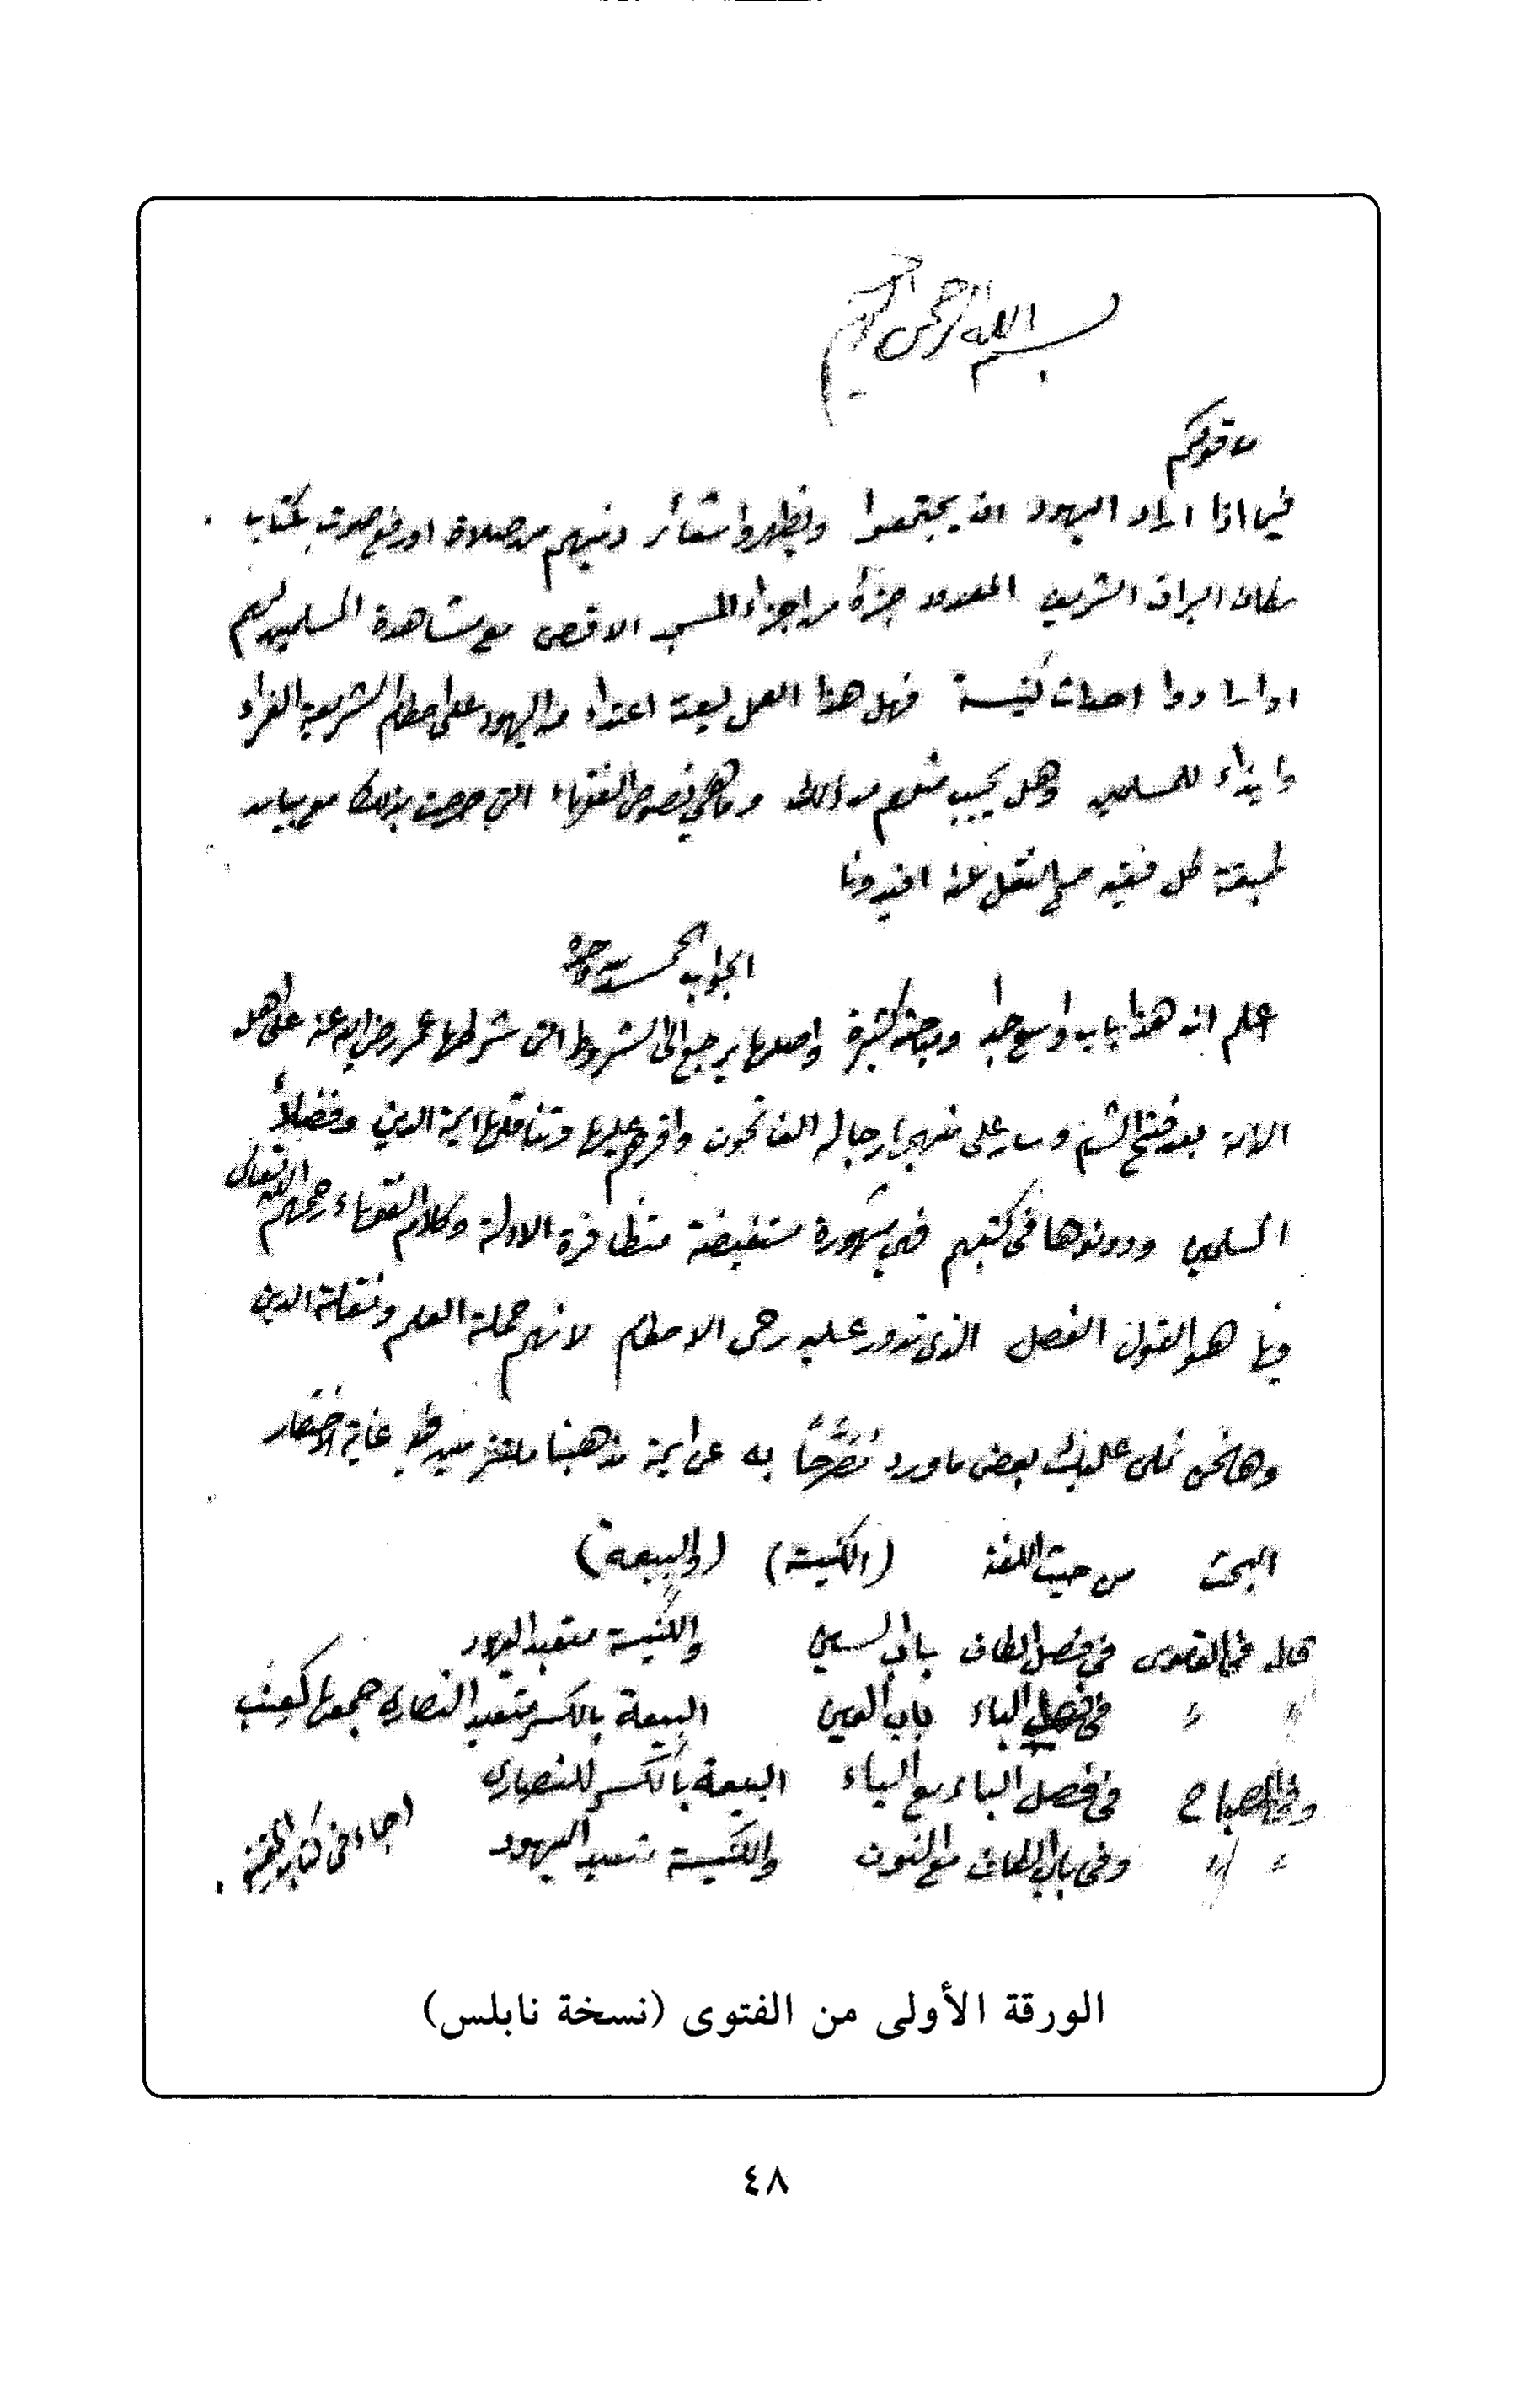 بسم الله الرحمن الرحيم
ما قولكم
فيما اذا اراد اليهود ان يجتمعوا ويظهروا شعائر دينهم من صلاة او رفع صوت بكتاب
بمكان البراق الشريف المعدود جزءً من اجزاء المسجد الاقصى مع مشاهدة المسلمين لهم
او ارادوا احداث كنيسة فهل هذا العمل يعد اعتداء من اليهود على احكام الشريعة الغراء
وايذاء للمسلمين وهل يجب منعهم من ذلك وما هي نصوص الفقهاء التي صرحت بذلك مع بيان
طبقة كل فقيه صح النقل عنه افيدونا
الجواب الحمد لله وحده
اعلم ان هذا باب واسع جداً ومباحثه كثيرة واصلها يرجع الى الشروط التي شرطها عمر رضي الله عنه على اهل
الذمة بعد فتح الشام وسار على نهجها رجاله الفاتحون واقرهم عليها وتناقلها ائمة الدين وفضلاً
المسلمين ودونوها في كتبهم فهي مشهورة مستفيضة متظافرة الادلة وكلام الفقهاء رحمهم الله تعالى
فيها هو القول الفصل الذي تدور عليه رحى الاحكام لانهم حملة العلم ونقلة الدين
وها نحن نملى عليك بعض ما ورد مصرحاً به عن ائمة مذهبنا ملتزمين فيه غاية الاختصار
البحث من حيث اللغة (الكنيسة) (والبيعة)
قال في القاموس في فصل الكاف باب السين والكنيسة متعبد اليهود
〃 〃 في فصل الباء باب العين البيعة بالكسر متعبد النصارى جمعها كعنب
وفي المصباح في فصل الباء مع الياء البيعة بالكسر للنصارى
〃 〃 وفي باب الكاف مع النون والكنيسة متعبد اليهود
الورقة الأولى من الفتوى (نسخة نابلس)
٤٨